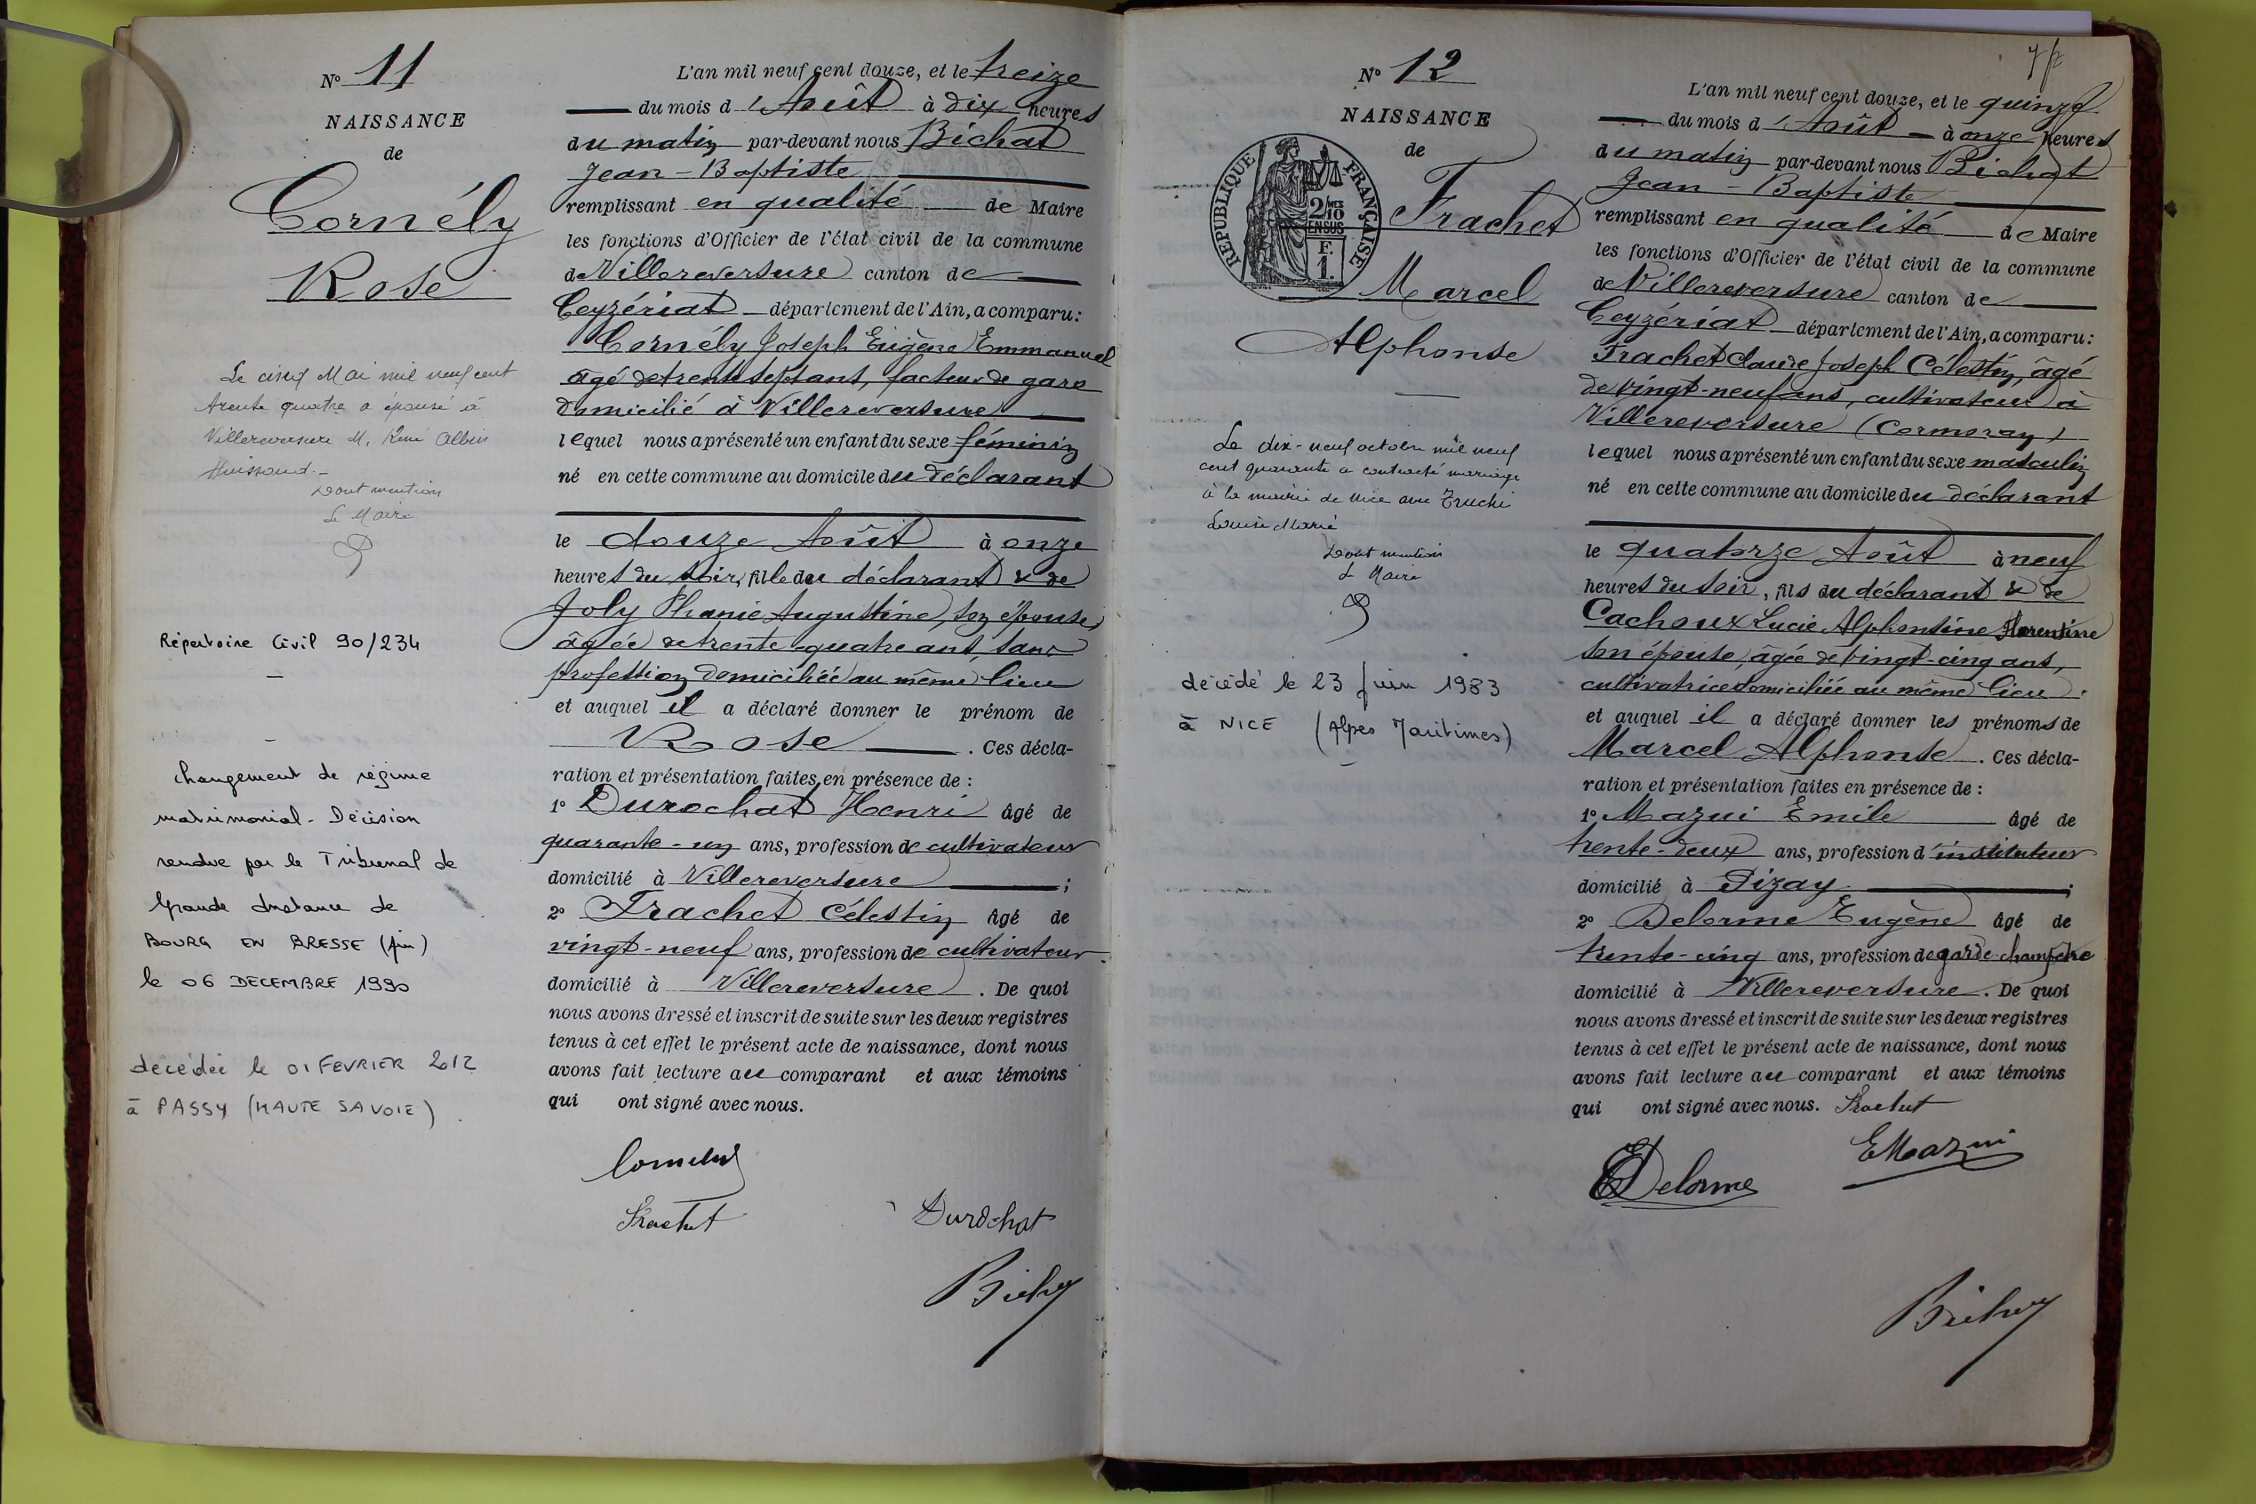 N° 11
NAISSANCE
de
Cornély
Rose
Le cinq Mai mil neuf cent
trente quatre a épousé à
Villereversure M. René Albin
dont mention
Le Maire
Répertoire Civil 90/234
changement de régime
matrimonial - Décision
rendue par le Tribunal de
Grande Instance de
BOURG EN BRESSE (Ain)
le 06 DECEMBRE 1990
décédée le 01 FEVRIER 2012
à PASSY (HAUTE SAVOIE)
L'an mil neuf cent douze, et le treize
du mois d'Août à dix heures
du matin par-devant nous Bichat
Jean-Baptiste
remplissant en qualité de Maire
les fonctions d'Officier de l'état civil de la commune
de Villereversure canton de
Ceyzériat département de l'Ain, a comparu:
Cornély Joseph Eugène Emmanuel
âgé de trente sept ans, facteur de gare
domicilié à Villereversure
lequel nous a présenté un enfant du sexe féminin
né en cette commune au domicile du déclarant
le douze Août à onze
heures du soir, fille du déclarant & de
Joly Phanie Augustine, son épouse,
âgée de trente-quatre ans, sans
profession domiciliée au même lieu
et auquel il a déclaré donner le prénom de
Rose. Ces décla-
ration et présentation faites en présence de :
1° Durochat Henri âgé de
quarante-un ans, profession de cultivateur
domicilié à Villereversure ;
2° Frachet Célestin âgé de
vingt-neuf ans, profession de cultivateur
domicilié à Villereversure. De quoi
nous avons dressé et inscrit de suite sur les deux registres
tenus à cet effet le présent acte de naissance, dont nous
avons fait lecture au comparant et aux témoins
qui ont signé avec nous.
Cornély
Frachet Durochat
Bichat
N° 12
NAISSANCE
de
REPUBLIQUE FRANÇAISE
2/10 MES
EN SUS
F.
1.
Frachet
Marcel
Alphonse
Le dix-neuf octobre mil neuf
cent quarante a contracté mariage
à la mairie de Nice avec Truchi
Louise Marie
Dont mention
Le Maire
décédé le 23 Juin 1983
à NICE (Alpes Maritimes)
L'an mil neuf cent douze, et le quinze
du mois d'Août à onze heures
du matin par-devant nous Bichat
Jean-Baptiste
remplissant en qualité de Maire
les fonctions d'Officier de l'état civil de la commune
de Villereversure canton de
Ceyzériat département de l'Ain, a comparu:
Frachet Claude Joseph Célestin, âgé
de vingt-neuf ans, cultivateur à
Villereversure (Cormoray)
lequel nous a présenté un enfant du sexe masculin
né en cette commune au domicile du déclarant
le quatorze Août à neuf
heures du soir, fils du déclarant & de
Cachoux Lucie Alphonsine Florentine
son épouse, âgée de vingt-cinq ans,
cultivatrice domiciliée au même lieu.
et auquel il a déclaré donner les prénoms de
Marcel Alphonse. Ces décla-
ration et présentation faites en présence de :
1° Mazui Emile âgé de
trente-deux ans, profession d'instituteur
domicilié à Pizay ;
2° Delorme Eugène âgé de
trente-cinq ans, profession de garde-champêtre
domicilié à Villereversure. De quoi
nous avons dressé et inscrit de suite sur les deux registres
tenus à cet effet le présent acte de naissance, dont nous
avons fait lecture au comparant et aux témoins
qui ont signé avec nous. Frachet
E Mazui
E Delorme
Bichat